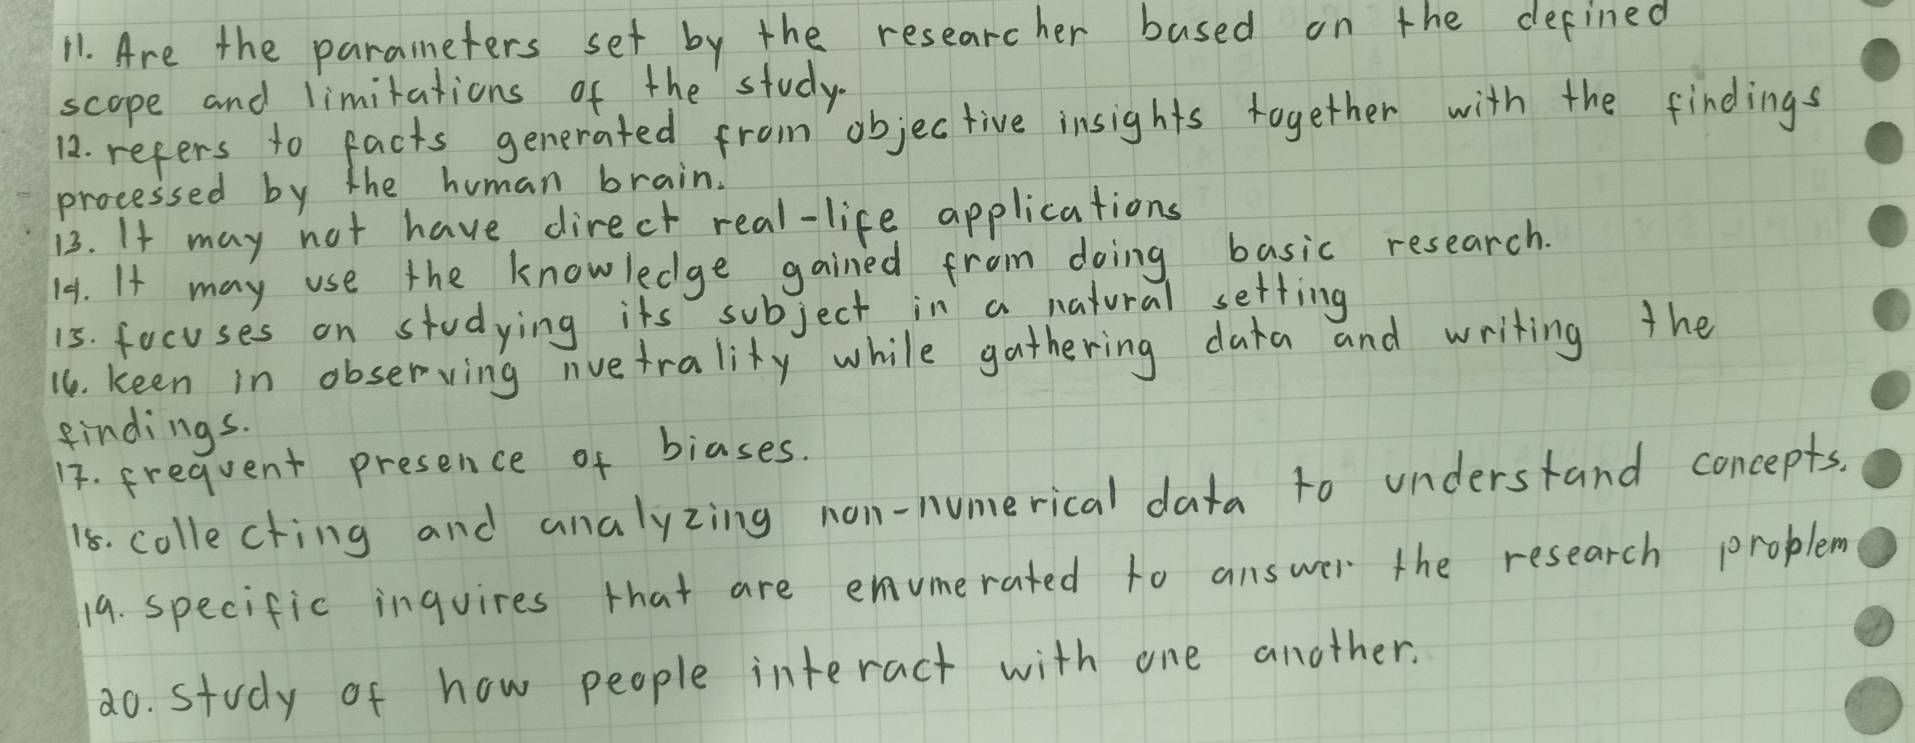 11. Are the parameters set by the researcher based on the defined
scope and limitations of the study.
12. refers to facts generated from objective insights together with the findings
processed by the human brain.
13. It may not have direct real-life applications
14. It may use the knowledge gained from doing basic research.
15. focuses on studying its subject in a natural setting
16. keen in observing nuetrality while gathering data and writing the
findings.
17. frequent presence of biases.
18. collecting and analyzing non-numerical data to understand concepts.
19. specific inquires that are enumerated to answer the research problem
20. study of how people interact with one another.